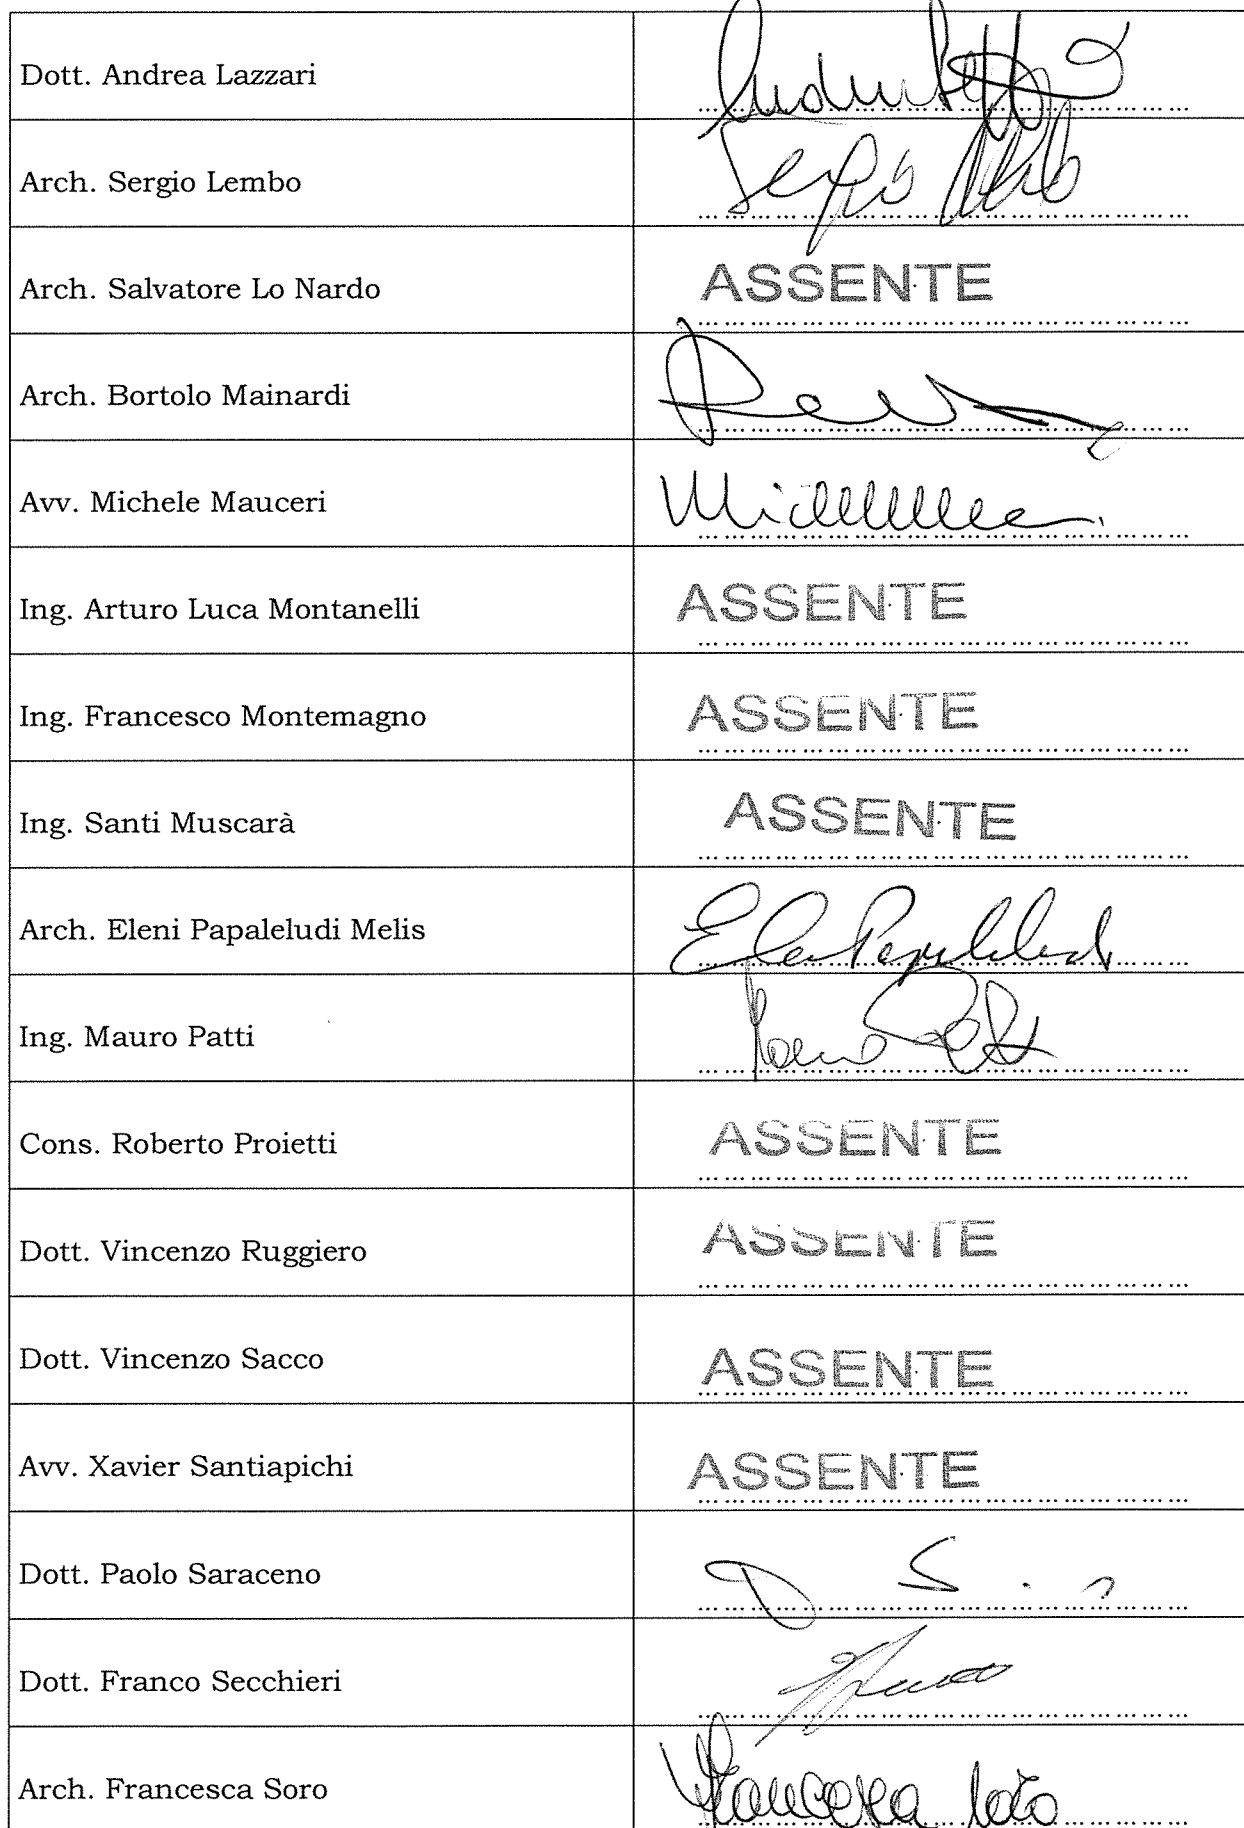 Dott. Andrea Lazzari
Arch. Sergio Lembo
Sergio Lembo
Arch. Salvatore Lo Nardo ASSENTE
Arch. Bortolo Mainardi
Avv. Michele Mauceri
Ing. Arturo Luca Montanelli ASSENTE
Ing. Francesco Montemagno ASSENTE
Ing. Santi Muscarà ASSENTE
Arch. Eleni Papaleludi Melis
Ing. Mauro Patti
Cons. Roberto Proietti ASSENTE
Dott. Vincenzo Ruggiero ASSENTE
Dott. Vincenzo Sacco ASSENTE
Avv. Xavier Santiapichi ASSENTE
Dott. Paolo Saraceno
Dott. Franco Secchieri
Arch. Francesca Soro Francesca Soro